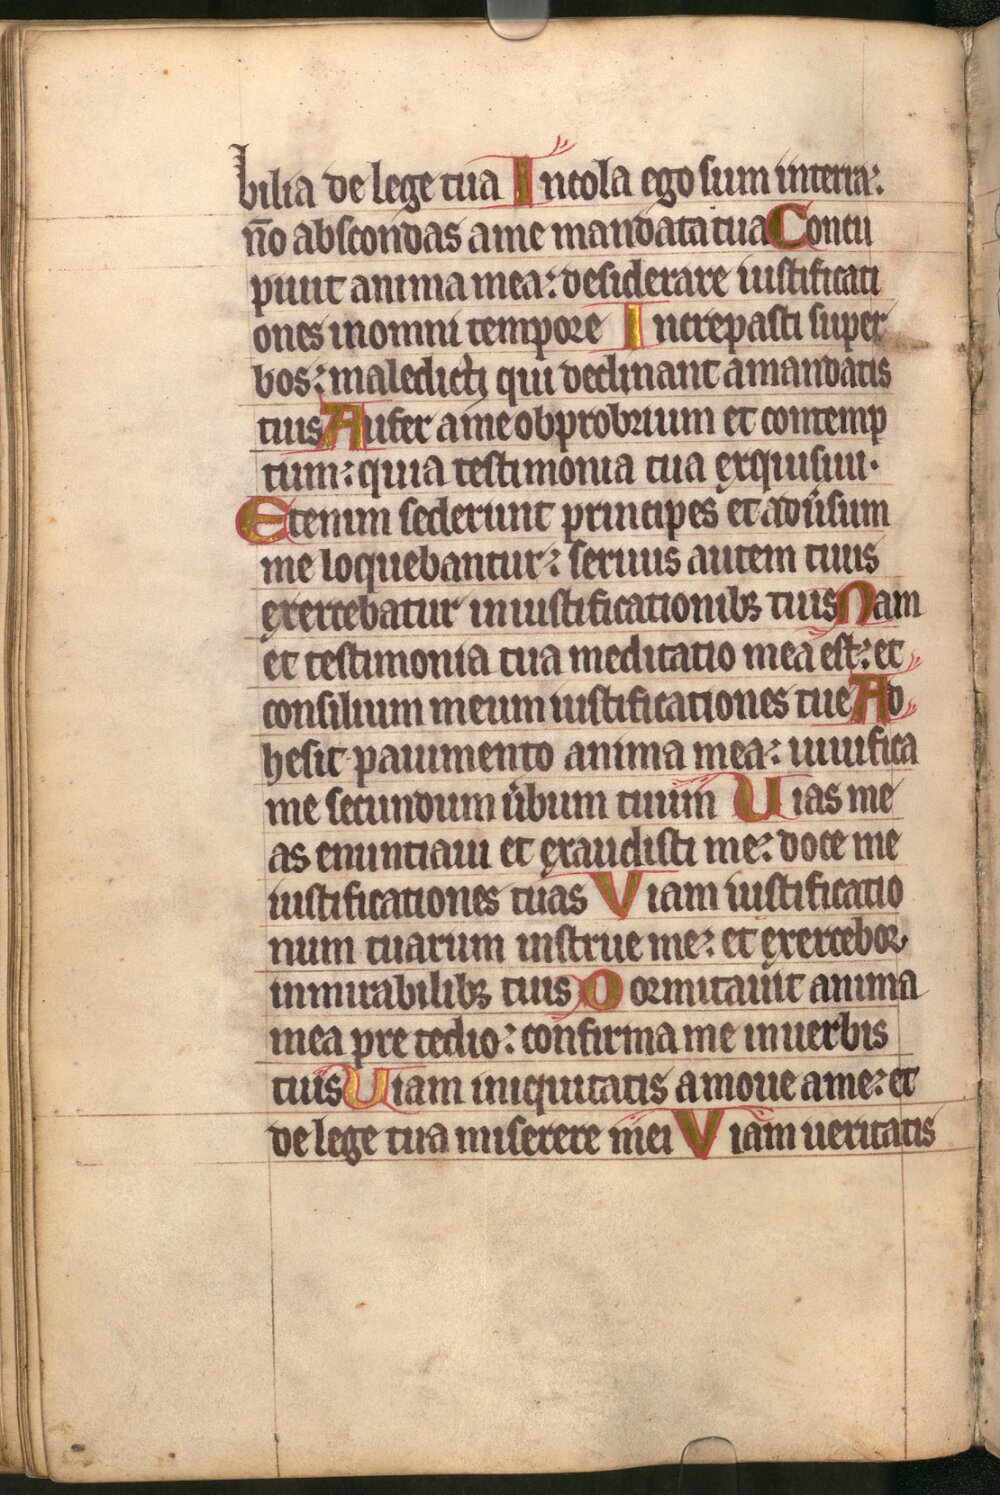 bilia de lege tua Incola ego sum interra:
no̅ abscondas ame mandata tua Concu
piuit anima mea: desiderare iustificati
ones inomni tempore Increpasti super
bos: maledicti qui declinant amandatis
tuis Aufer ame obprobrium et contemp
tum: quia testimonia tua exquisiui.
Etenim sederunt principes et adu̅sum
me loquebantur: seruus autem tuus
exercebatur iniustificationibꝫ tuis Nam
et testimonia tua meditatio mea est: et
consilium meum iustificationes tue Ad
hesit pauimento anima mea: uiuifica
me secundum u̅bum tuum Uias me
as enuntiaui et exaudisti me: doce me
iustificationes tuas Viam iustificatio
num tuarum instrue me: et exercebor
inmirabilibꝫ tuis Dormitauit anima
mea pre tedio: confirma me inuerbis
tuis Uiam iniquitatis amoue ame: et
de lege tua miserere mei Viam ueritatis